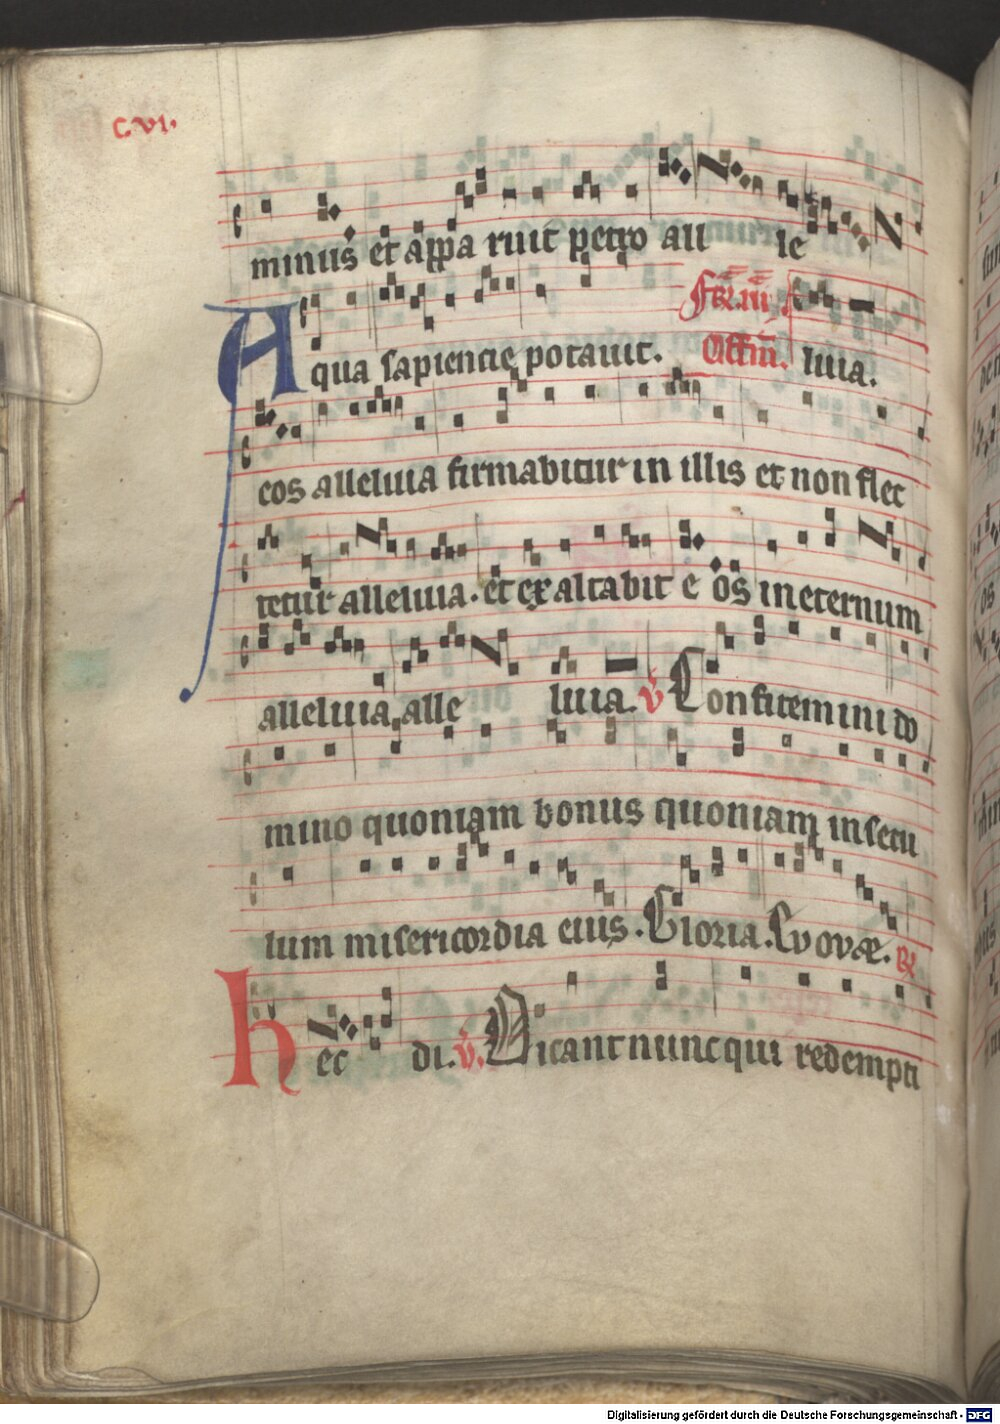 C.VI.
minus et appa ruit petro all le
Aqua sapiencie potauit. luia.
eos alleluia firmabitur in illis et non flec
tetur alleluia. et exaltabit e os in eternum
alleluia alle luia. V Confitemini do
mino quoniam bonus quoniam in secu
lum misericordia eius. Gloria. Euovae. R
hec di. V. Dicant nunc qui redempti
Digitalisierung gefördert durch die Deutsche Forschungsgemeinschaft - DFG